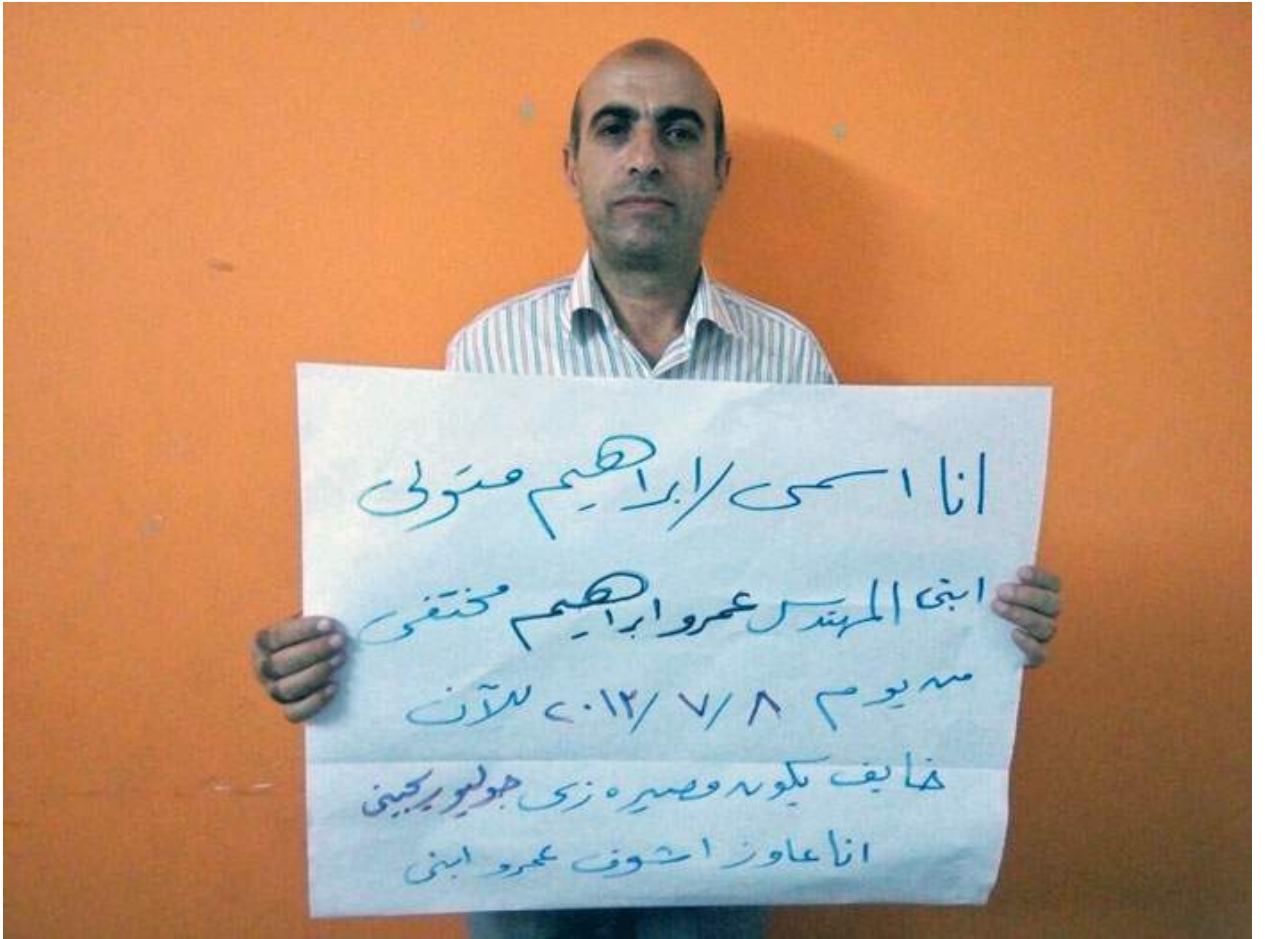 انا اسمى / ابراهيم متولى
ابنى المهندس عمرو ابراهيم مختفى
من يوم ٨/٧/٢٠١٣ للآن
خايف يكون مصيره زى جوليو ريجينى
انا عاوز اشوف عمرو ابنى